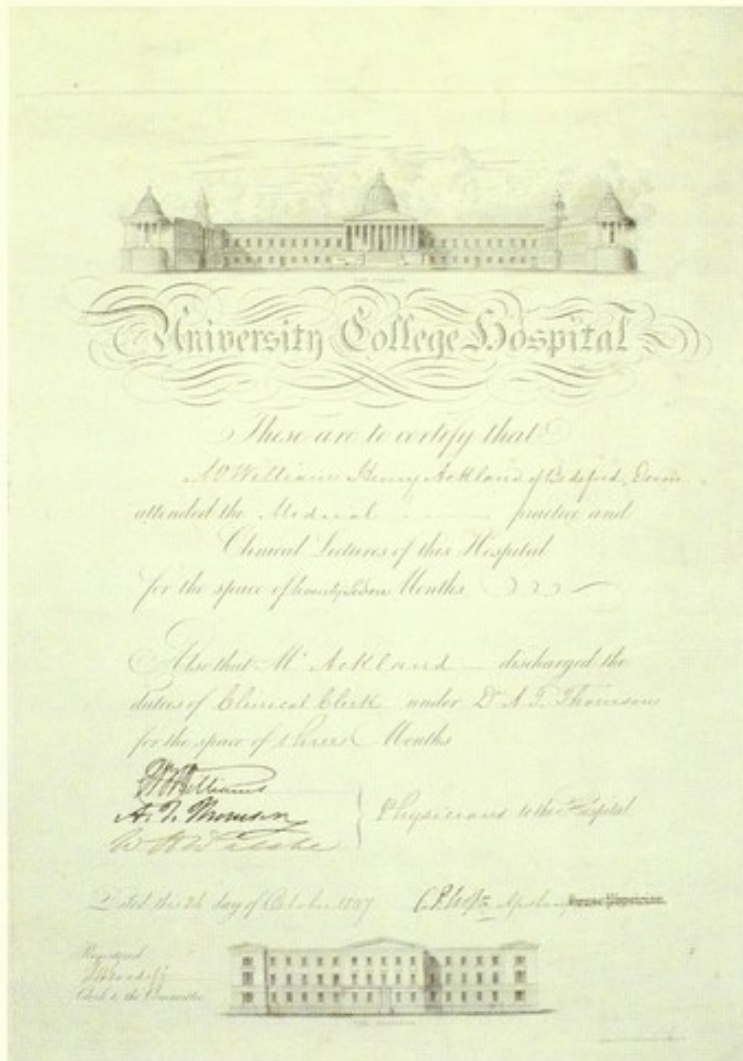 University College Hospital
These are to certify that
Mr William Henry Ackland of Bideford, Devon
attended the Medical practice and
Clinical Lectures of this Hospital
for the space of Months
Also that Mr Ackland discharged the
duties of Clinical Clerk under Dr A. T. Thomson
for the space of three Months
Williams
A. T. Thomson
Physicians to the Hospital
Dated this day of October 1847
Registered
Clerk to the Committee